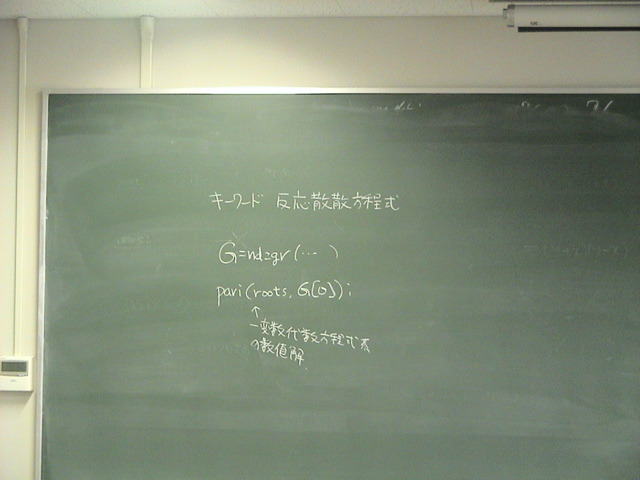 キーワード 反応散散方程式
G=nd_gr(…)
pari(roots, G[0]);
↑
一変数代数方程式系
の数値解